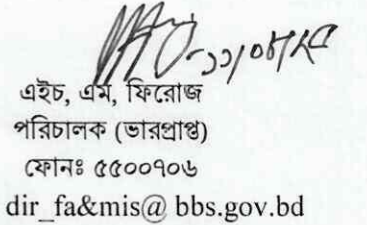 ১১/০৮/২৫
এইচ, এম, ফিরোজ
পরিচালক (ভারপ্রাপ্ত)
ফোনঃ ৫৫০০৭০৬
dir_fa&mis@ bbs.gov.bd